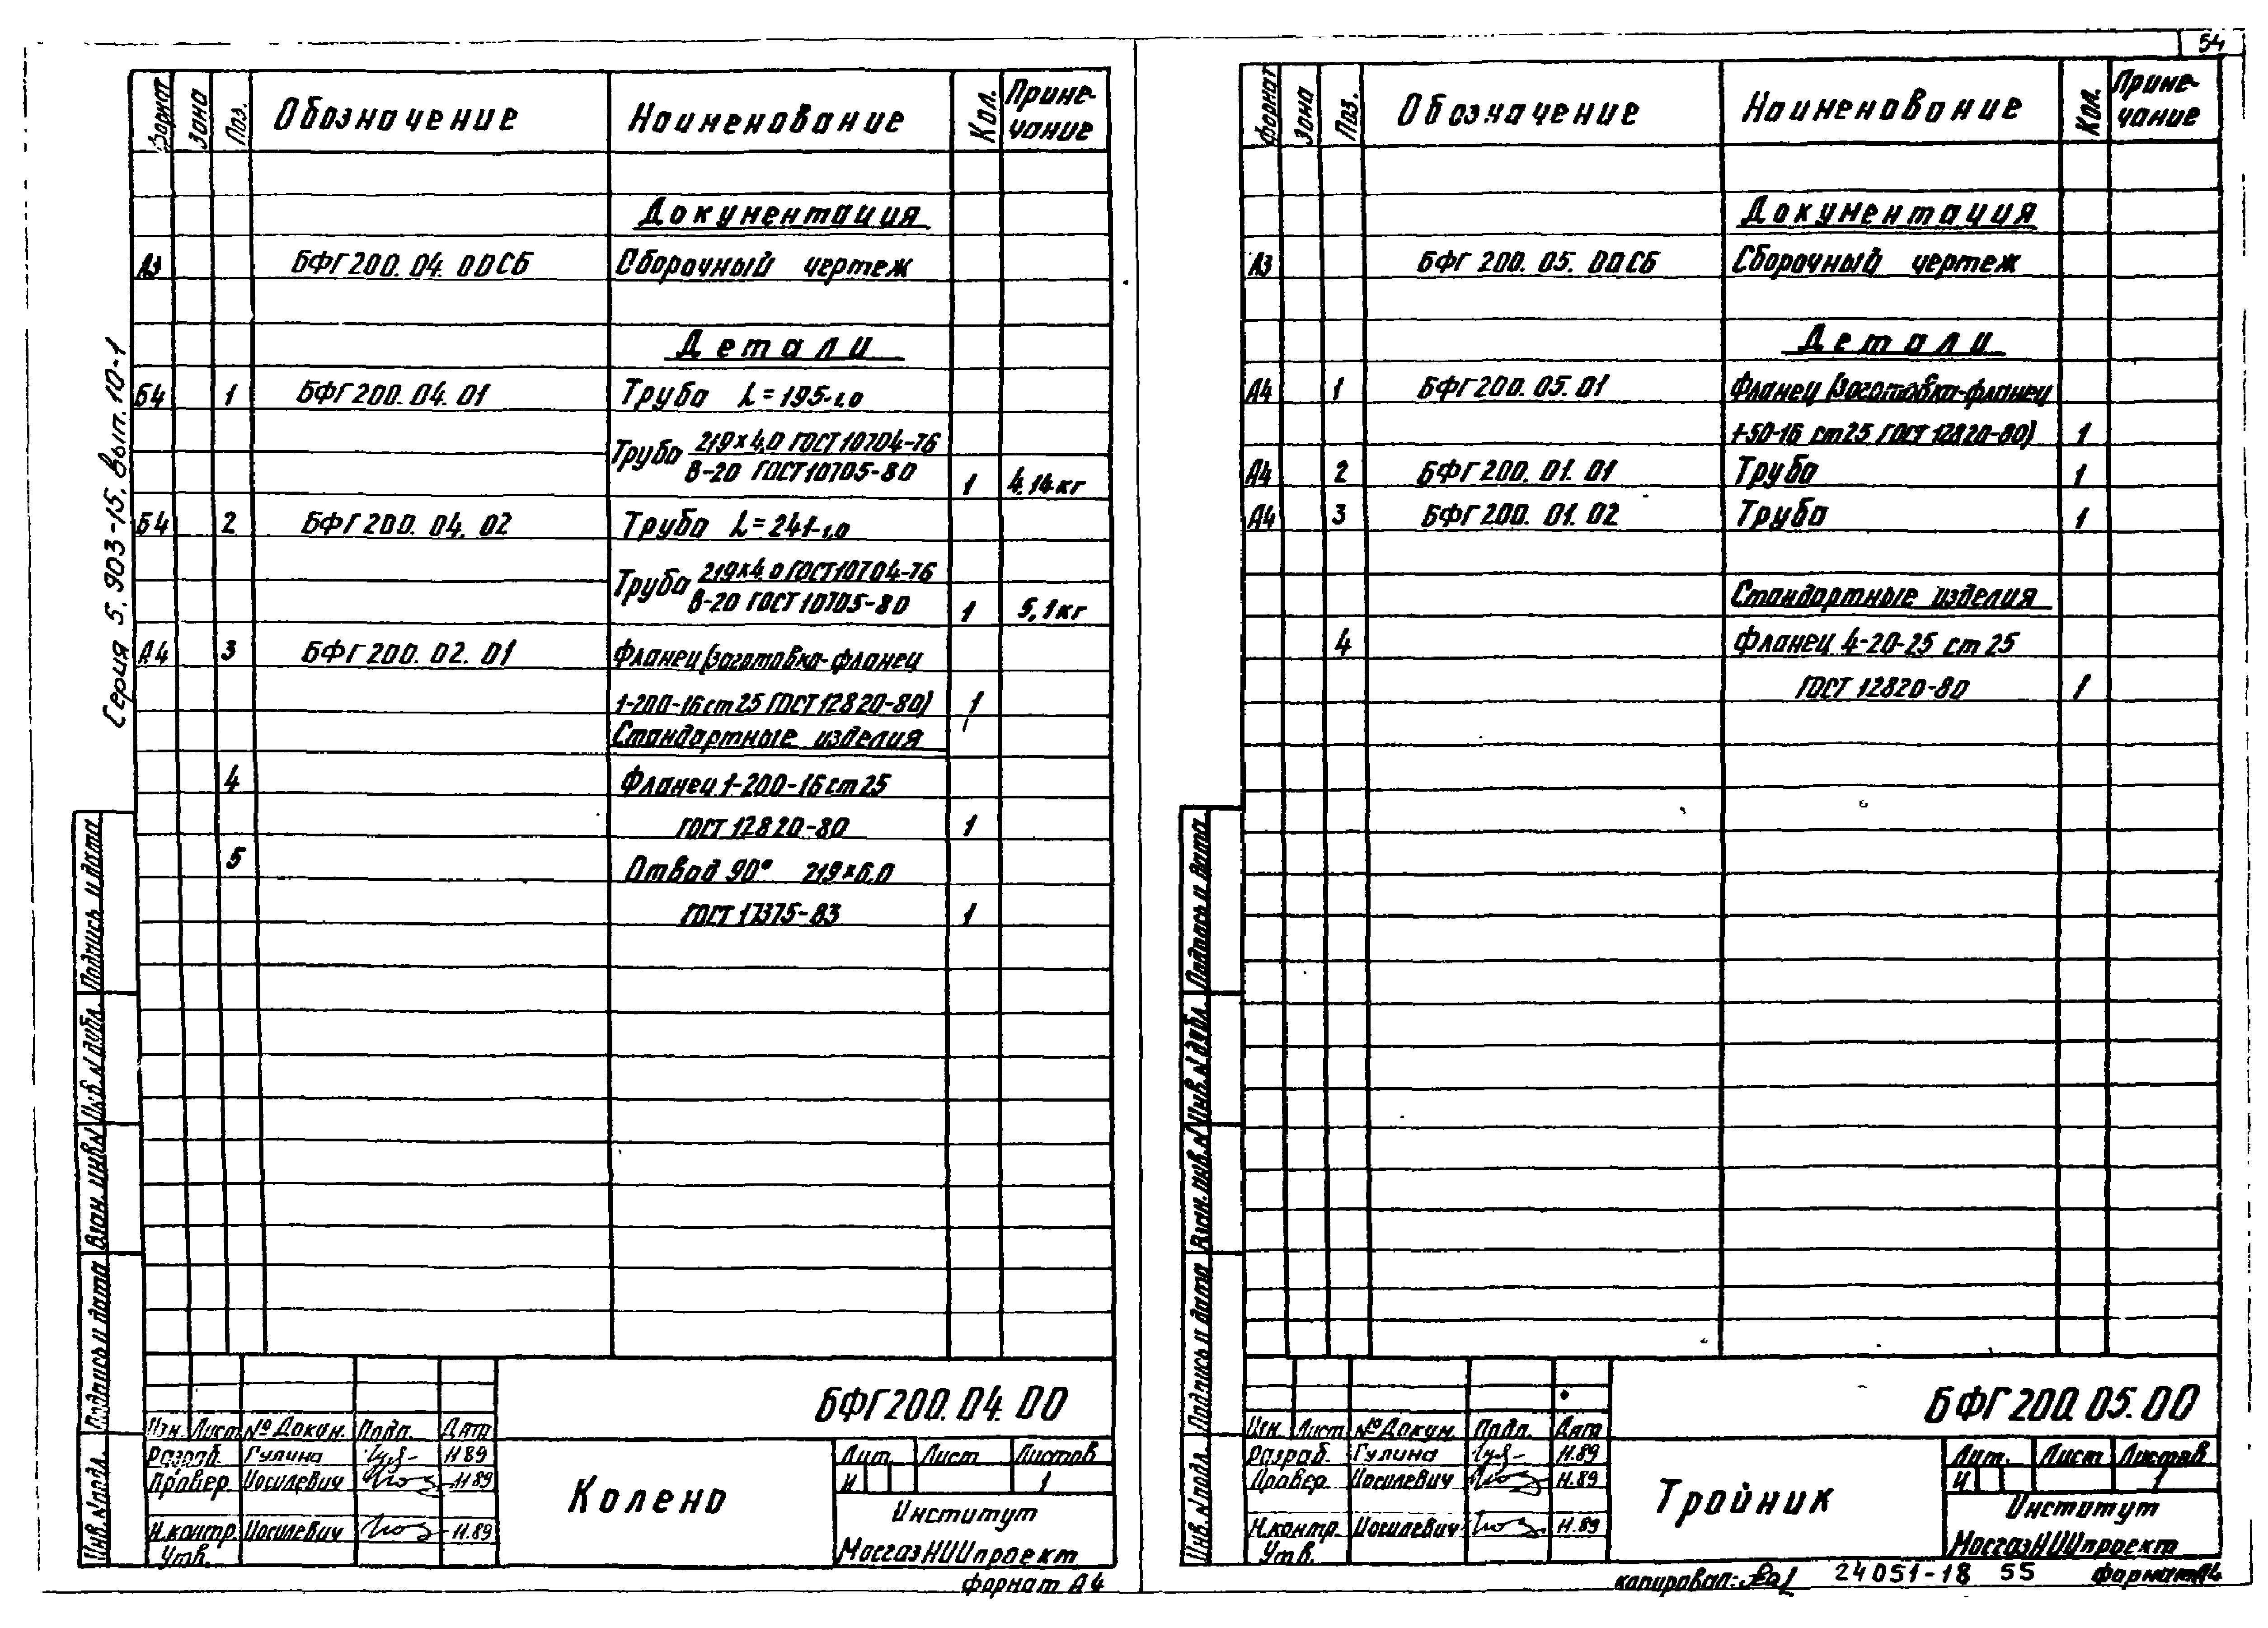 54
Серия 5.903-15. вып. 10-1
Формат Зона Поз. Обозначение Наименование Кол. Приме-
чание
Документация
А3 БФГ200.04.00СБ Сборочный чертеж
Детали
Б4 1 БФГ200.04.01 Труба L=195-1,0
Труба 219×4,0 ГОСТ10704-76
В-20 ГОСТ10705-80 1 4,14кг
Б4 2 БФГ200.04.02 Труба L=241-1,0
Труба 219×4,0 ГОСТ10704-76
В-20 ГОСТ10705-80 1 5,1кг
А4 3 БФГ200.02.01 Фланец (заготовка-фланец
1-200-16 ст25 ГОСТ12820-80) 1
Стандартные изделия
4 Фланец 1-200-16 ст25
ГОСТ 12820-80 1
5 Отвод 90° 219×6,0
ГОСТ 17375-83 1
Подпись и дата
Инв. N дубл.
Взам. инв. N
Подпись и дата
Инв. N подл.
БФГ200.04.00
Изм. Лист № Докум. Подп. Дата
Разраб. Гулина 11.89
Провер Иосилевич 11.89
Н.контр. Иосилевич 11.89
Утв.
Колено
Лит. Лист Листов
И 1
Институт
МосгазНИИпроект
формат А4
Формат Зона Поз. Обозначение Наименование Кол. Приме-
чание
Документация
А3 БФГ 200.05.00СБ Сборочный чертеж
Детали
А4 1 БФГ200.05.01 Фланец (заготовка-фланец
1-50-16 ст25 ГОСТ 12820-80) 1
А4 2 БФГ200.01.01 Труба 1
А4 3 БФГ200.01.02 Труба 1
Стандартные изделия
4 Фланец 4-20-25 ст 25
ГОСТ 12820-80 1
Подпись и дата
Инв. N дубл.
Взам. инв. N
Подпись и дата
Инв. N подл.
БФГ200.05.00
Изм. Лист № Докум. Подп. Дата
Разраб. Гулина 11.89
Провер. Иосилевич 11.89
Н.контр. Иосилевич 11.89
Утв.
Тройник
Лит. Лист Листов
И 1
Институт
МосгазНИИпроект
копировал: 24051-18 55 формат А4